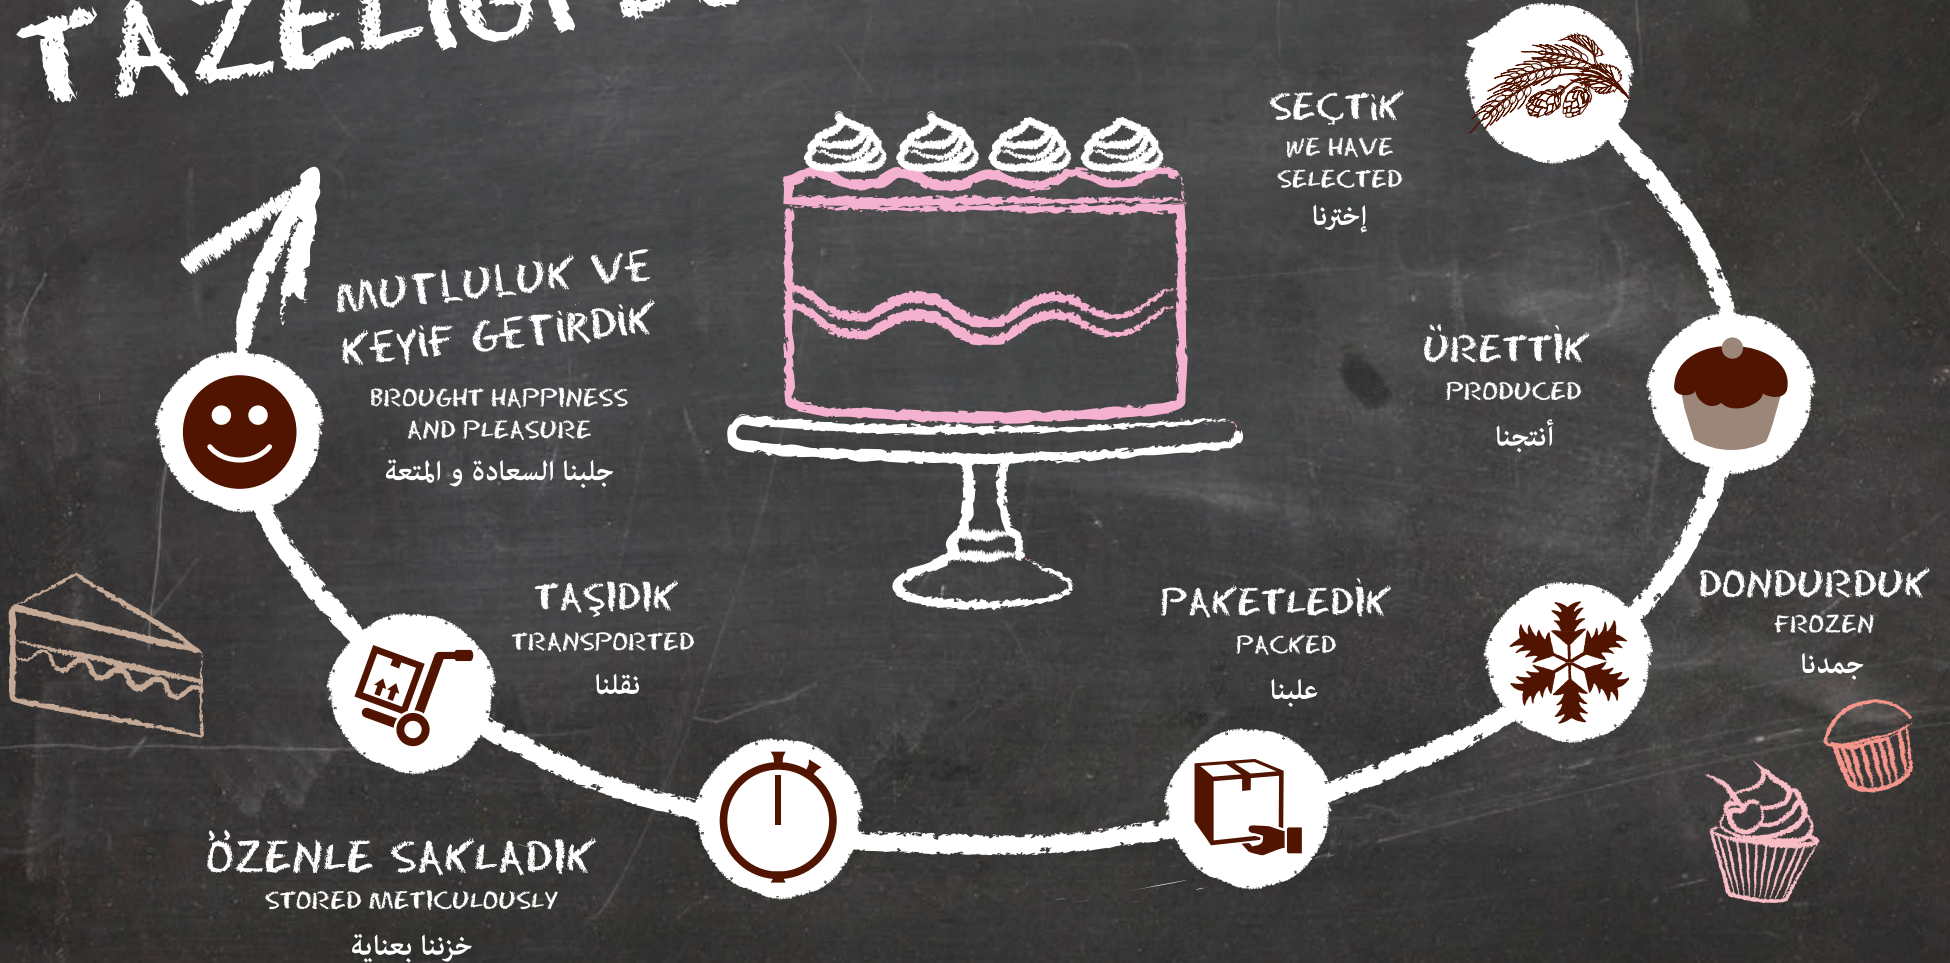 SEÇTİK
WE HAVE
SELECTED
إخترنا
ÜRETTİK
PRODUCED
أنتجنا
DONDURDUK
FROZEN
جمدنا
PAKETLEDİK
PACKED
علبنا
ÖZENLE SAKLADIK
STORED METICULOUSLY
خزننا بعناية
TAŞIDIK
TRANSPORTED
نقلنا
MUTLULUK VE
KEYİF GETİRDİK
BROUGHT HAPPINESS
AND PLEASURE
جلبنا السعادة و المتعة